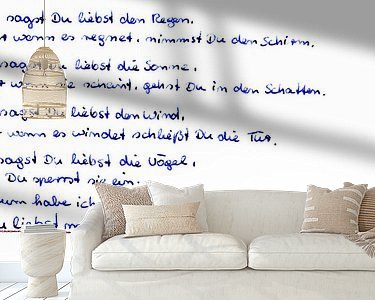 sagst Du liebst den Regen,
wenn es regnet, nimmst Du den Schirm.
sagst Du liebst die Sonne,
sie scheint, gehst Du in den Schatten.
sagst Du liebst den Wind,
wenn es windet schließt Du die Tür.
sagst Du liebst die Vögel,
Du sperrst sie ein.
habe ich
liebst